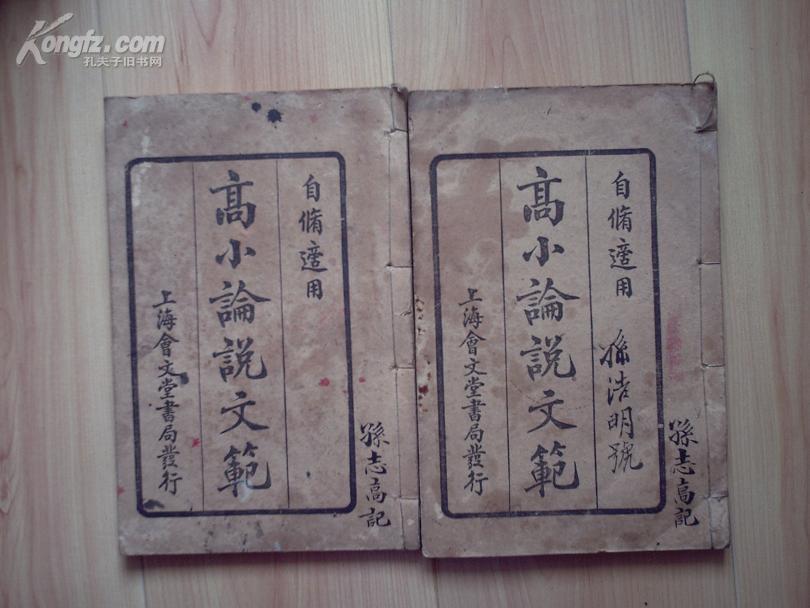 Kongfz.com
孔夫子旧书网
自脩適用
高小論説文範
上海會文堂書局發行
孫志高記
自脩適用
孫浩明號
高小論説文範
上海會文堂書局發行
孫志高記